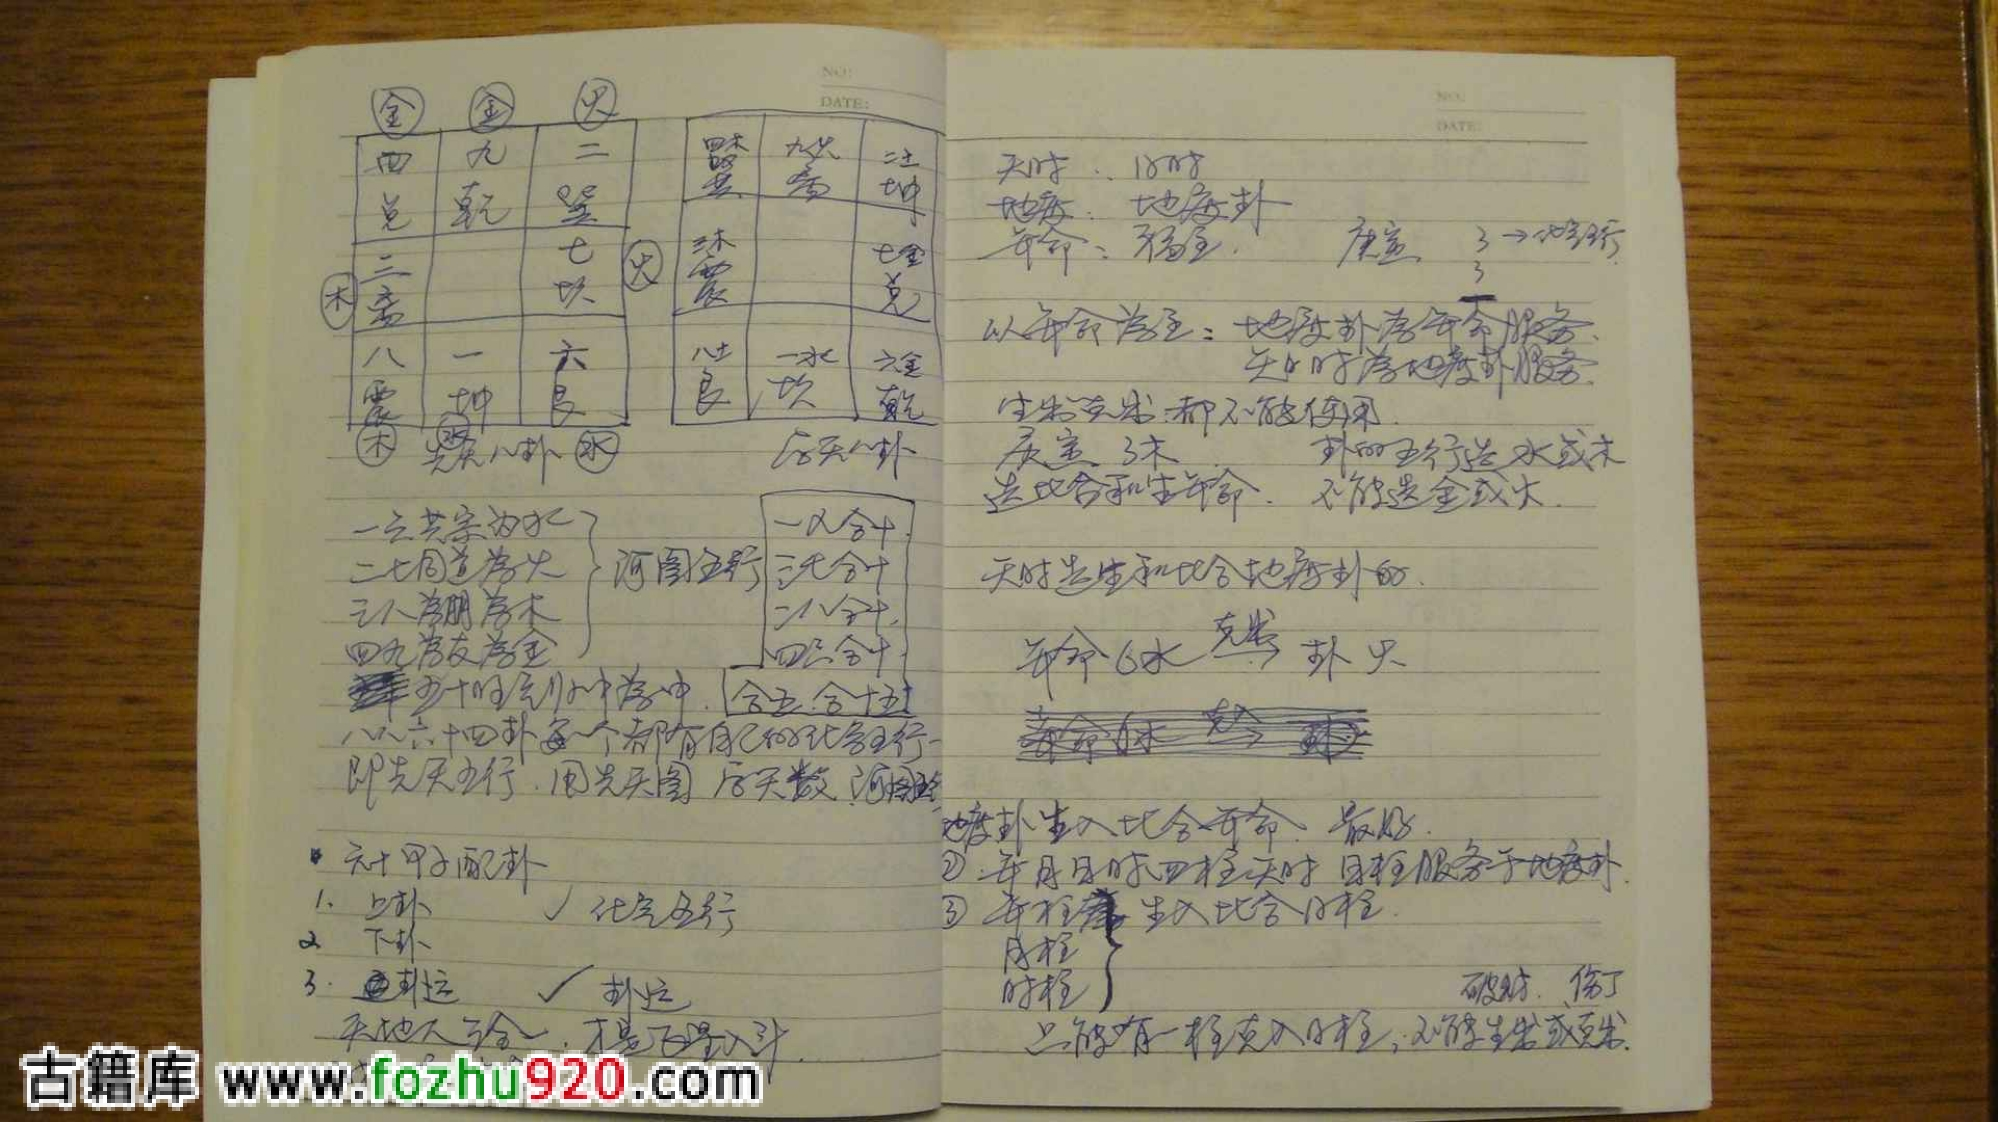 NO:
DATE:
金 金 火
四 九 二
兑 乾 巽
三 七
离 坎
木 火
八 一 六
震 坤 艮
木 水 水
先天八卦
四木 九火 二土
巽 离 坤
三木 七金
震 兑
八土 一水 六金
艮 坎 乾
后天八卦
一六共宗为水
二七同道为火
三八为朋为木
四九为友为金
河图五行
一九合十
三七合十
二八合十
四六合十
合五.合十五
八八六十四卦每一个都有自己的化气五行
即先天五行.用先天图 后天数.河图五行
六十甲子配卦
1. 上卦 ✓ 化气五行
2. 下卦
3. 卦运 ✓ 卦运
天地人三合一.才是
NO.
DATE:
天时: 日时
地度: 地度卦
年命: 庚寅 3→化气五行
3
以年命为主: 地度卦为年命服务.
天时为地度卦服务.
生出克出.都不能使用.
庚寅 3木 卦的五行选水或木
选比合和生年命. 不能选金或火.
天时选生和比合地度卦的.
年命6水 克出→ 卦火
地度卦生入比合年命.最好.
② 年月日时四柱天时 日柱服务于地度卦.
③ 年柱 生入比合日柱.
月柱
时柱
破财. 伤丁
只能有一柱克入日柱,不能生出或克出.
古籍库 www.fozhu920.com